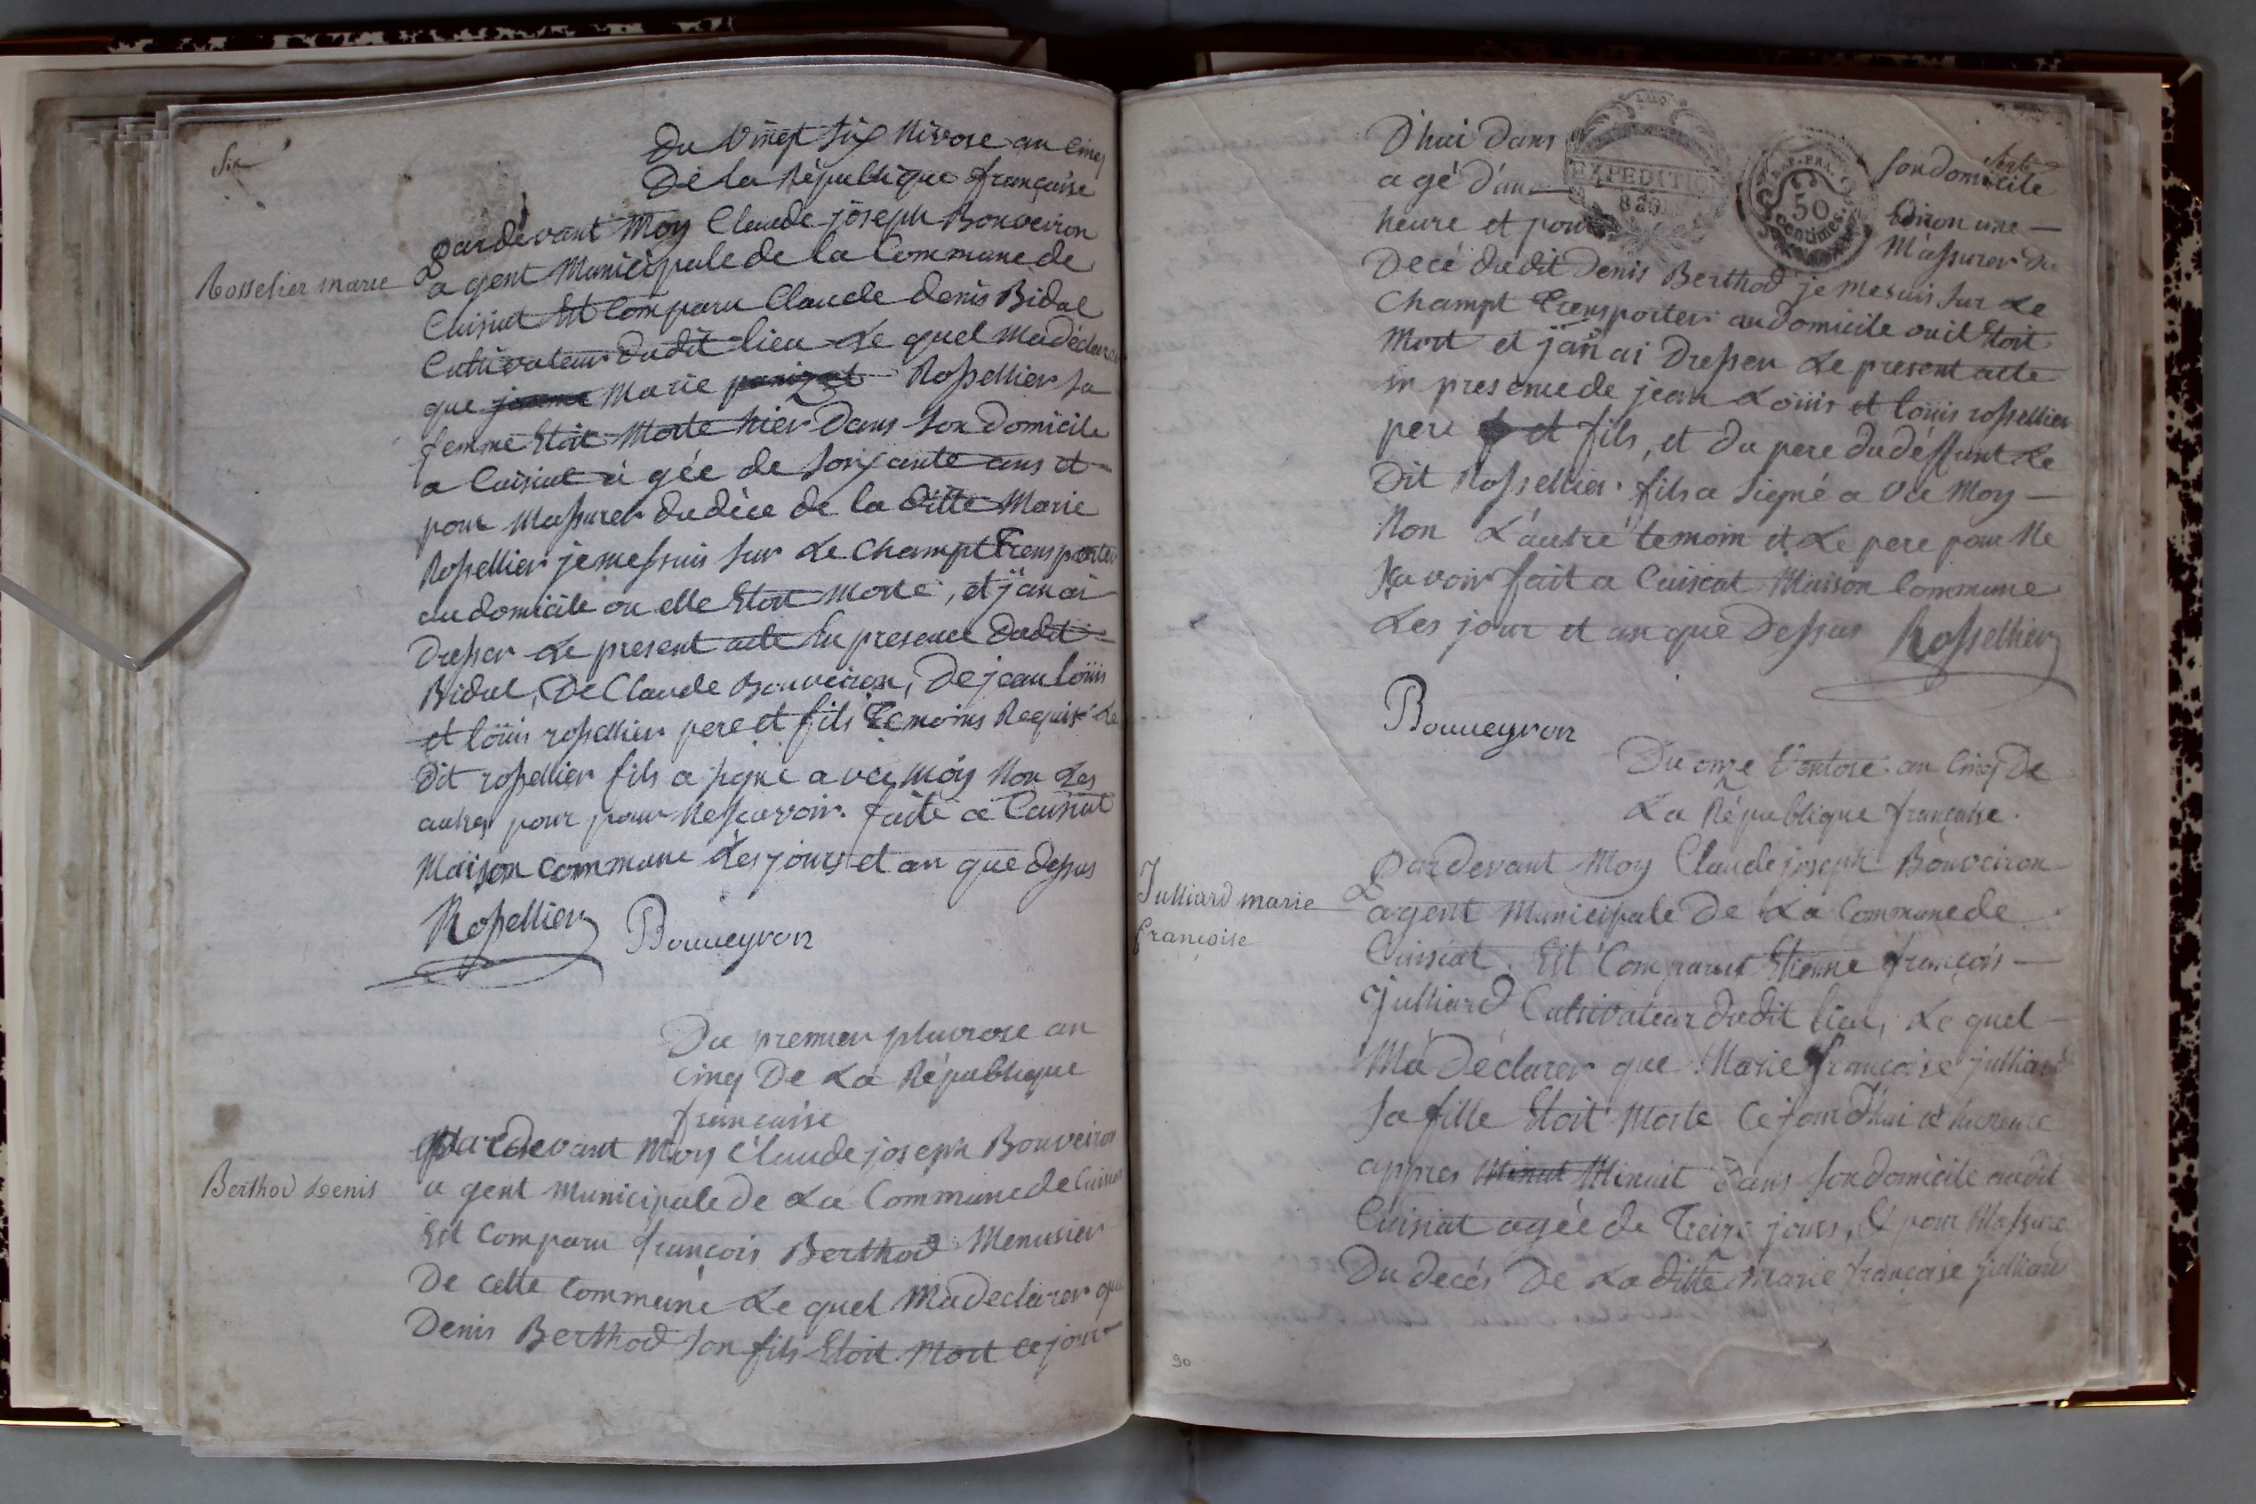 Six
Du Vinept Six Nivose an Cinq
De la République françaíse
pardevant Moy Claude joseph Bouveiron
Rosselier marie
agent Municipale de la Commune de
Cuisiat Est Comparu Claude denis Bidal
Cultivateur dudit lieu Le quel Ma déclarer
que Marie Rossellier sa
femme Etoit Morte hier Dans son domicile
a Cuisiat a gée de soixante ans et
pour Massurer du déce de la ditte Marie
Rossellier je me ssuis sur Le champt Trensporter
au domicile ou elle Etoit Morte, et j'an ai
Dresser Le present acte En presence dudit
Bidal, De Claude Bouveiron, De jean loüis
et loüis rossellier pere et fils Temoins Requis Le
dit rossellier fils a signé avec Moy Non Les
autres pour pour Ne scavoir. faite a Cuisiat
Maison commune Les jours et an que dessus
Rossellier Bouveyron
Du premier pluviose an
cinq De La République
française
pardevant Moy Claude joseph Bouveiron
Berthod Denis
agent Municipale de La Commune de Cuisiat
Est Comparu françois Berthod Menusier
De cette Commune Le quel Ma declarer que
Denis Berthod son fils Etoit Mort ce jour
D'hui Dans son domicile
EXPEDITION
REP. FRA.
50
Centimes
a gé d'un
heure et pour M'assurer du
Decé du dit Denis Berthod je me suis sur Le
Champt Trensporter au domicile ou il Etoit
Mort et j'an ai Dresser Le present acte
in presence de jean Loüis et loüis rossellier
pere et fils, et du pere du déffunt Le
Dit Rossellier fils a signé avec Moy
Non L'autre temoin et Le pere pour Ne
scavoir fait a Cuisiat Maison Commune
Les jour et an que Dessus Rossellier
Bouveyron
Du onze Ventose an Cinq De
La République française.
pardevant Moy Claude joseph Bouveiron
Julliard marie
françoise
agent Municipale De La Commune de
Cuisiat. Est Comparut Etienne françois
julliard Cultivateur dudit lieu, Le quel
Ma Déclarer que Marie française julliard
sa fille Etoit Morte Ce jour d'hui a heure
appres Minuit Dans son domicile audit
Cuisiat agée de Treize jours, & pour Massure
Du decés De La ditte Marie française julliard
90